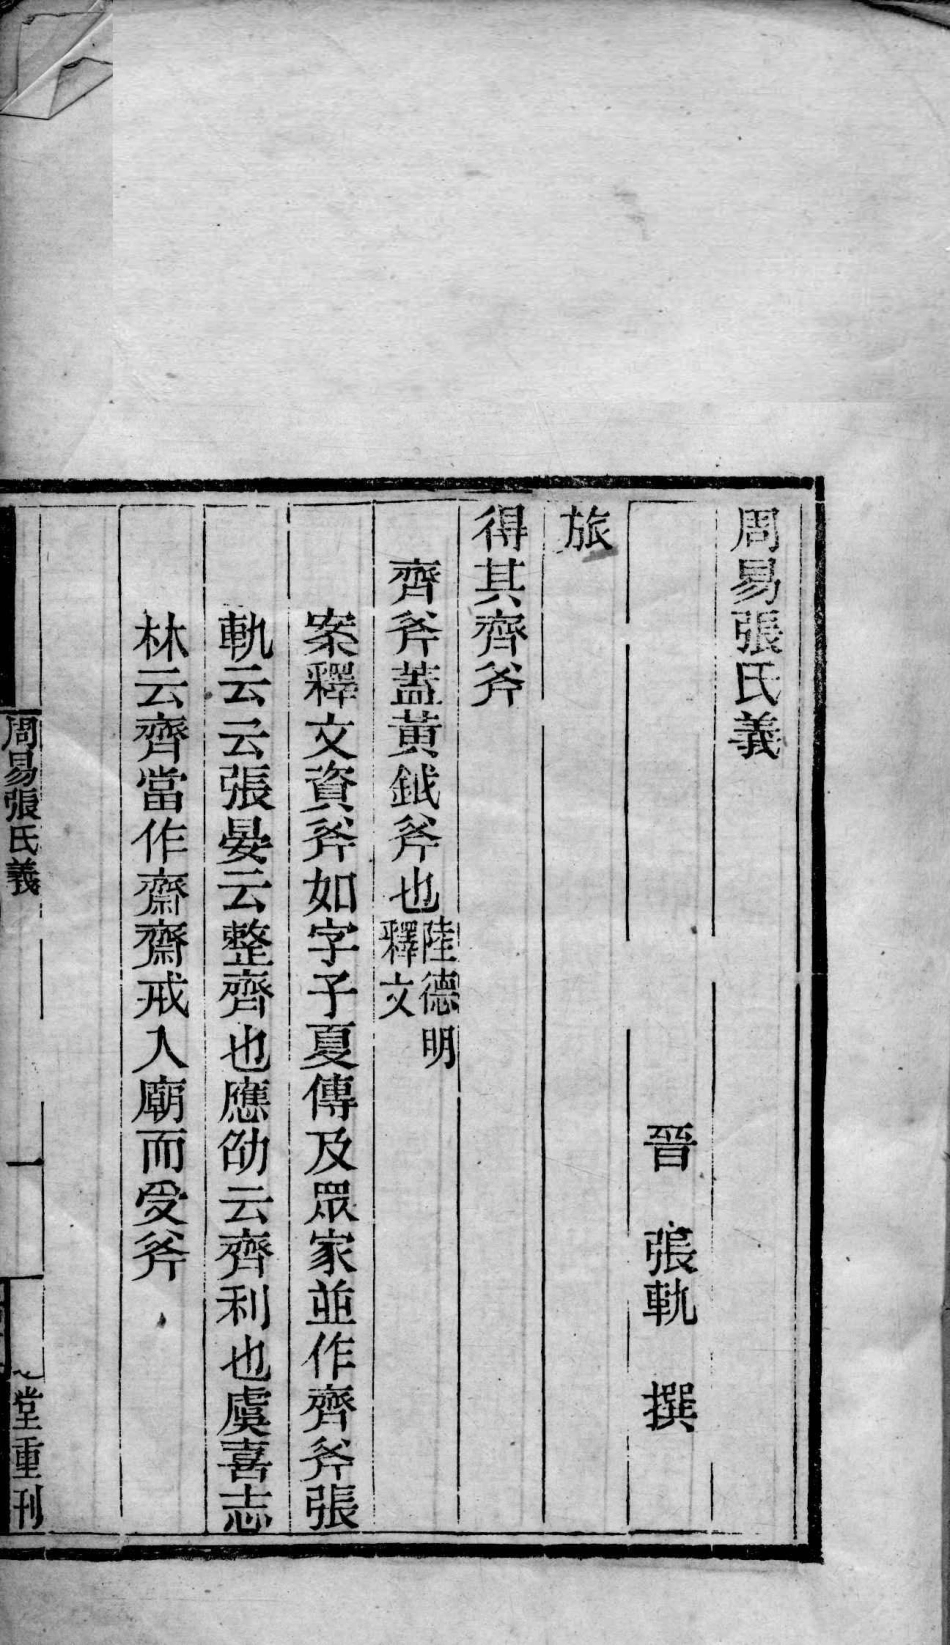 周易張氏義
晉　張軌　撰
旅
得其齊斧
齊斧蓋黃鉞斧也陸德明
釋文
案釋文資斧如字子夏傳及眾家並作齊斧張
軌云云張晏云整齊也應劭云齊利也虞喜志
林云齊當作齋齋戒入廟而受斧
周易張氏義
一
堂重刊